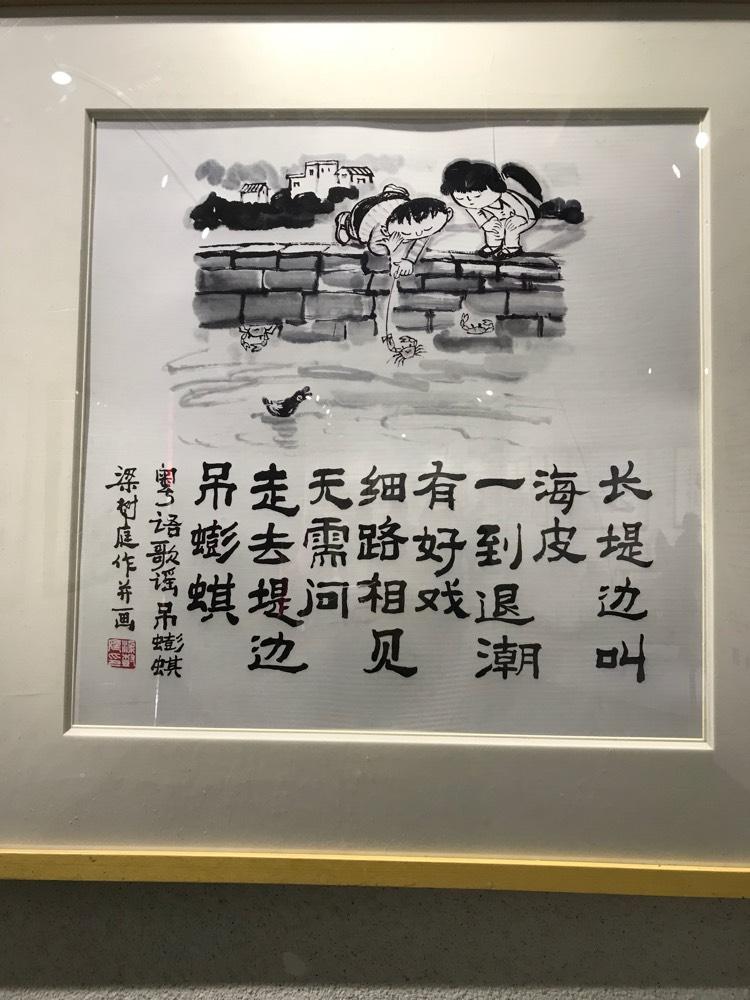 长堤边叫
海皮
一到退潮
有好戏
细路相见
无需问
走去堤边
吊蟛蜞
粤语歌谣吊蟛蜞
梁树庭作并画